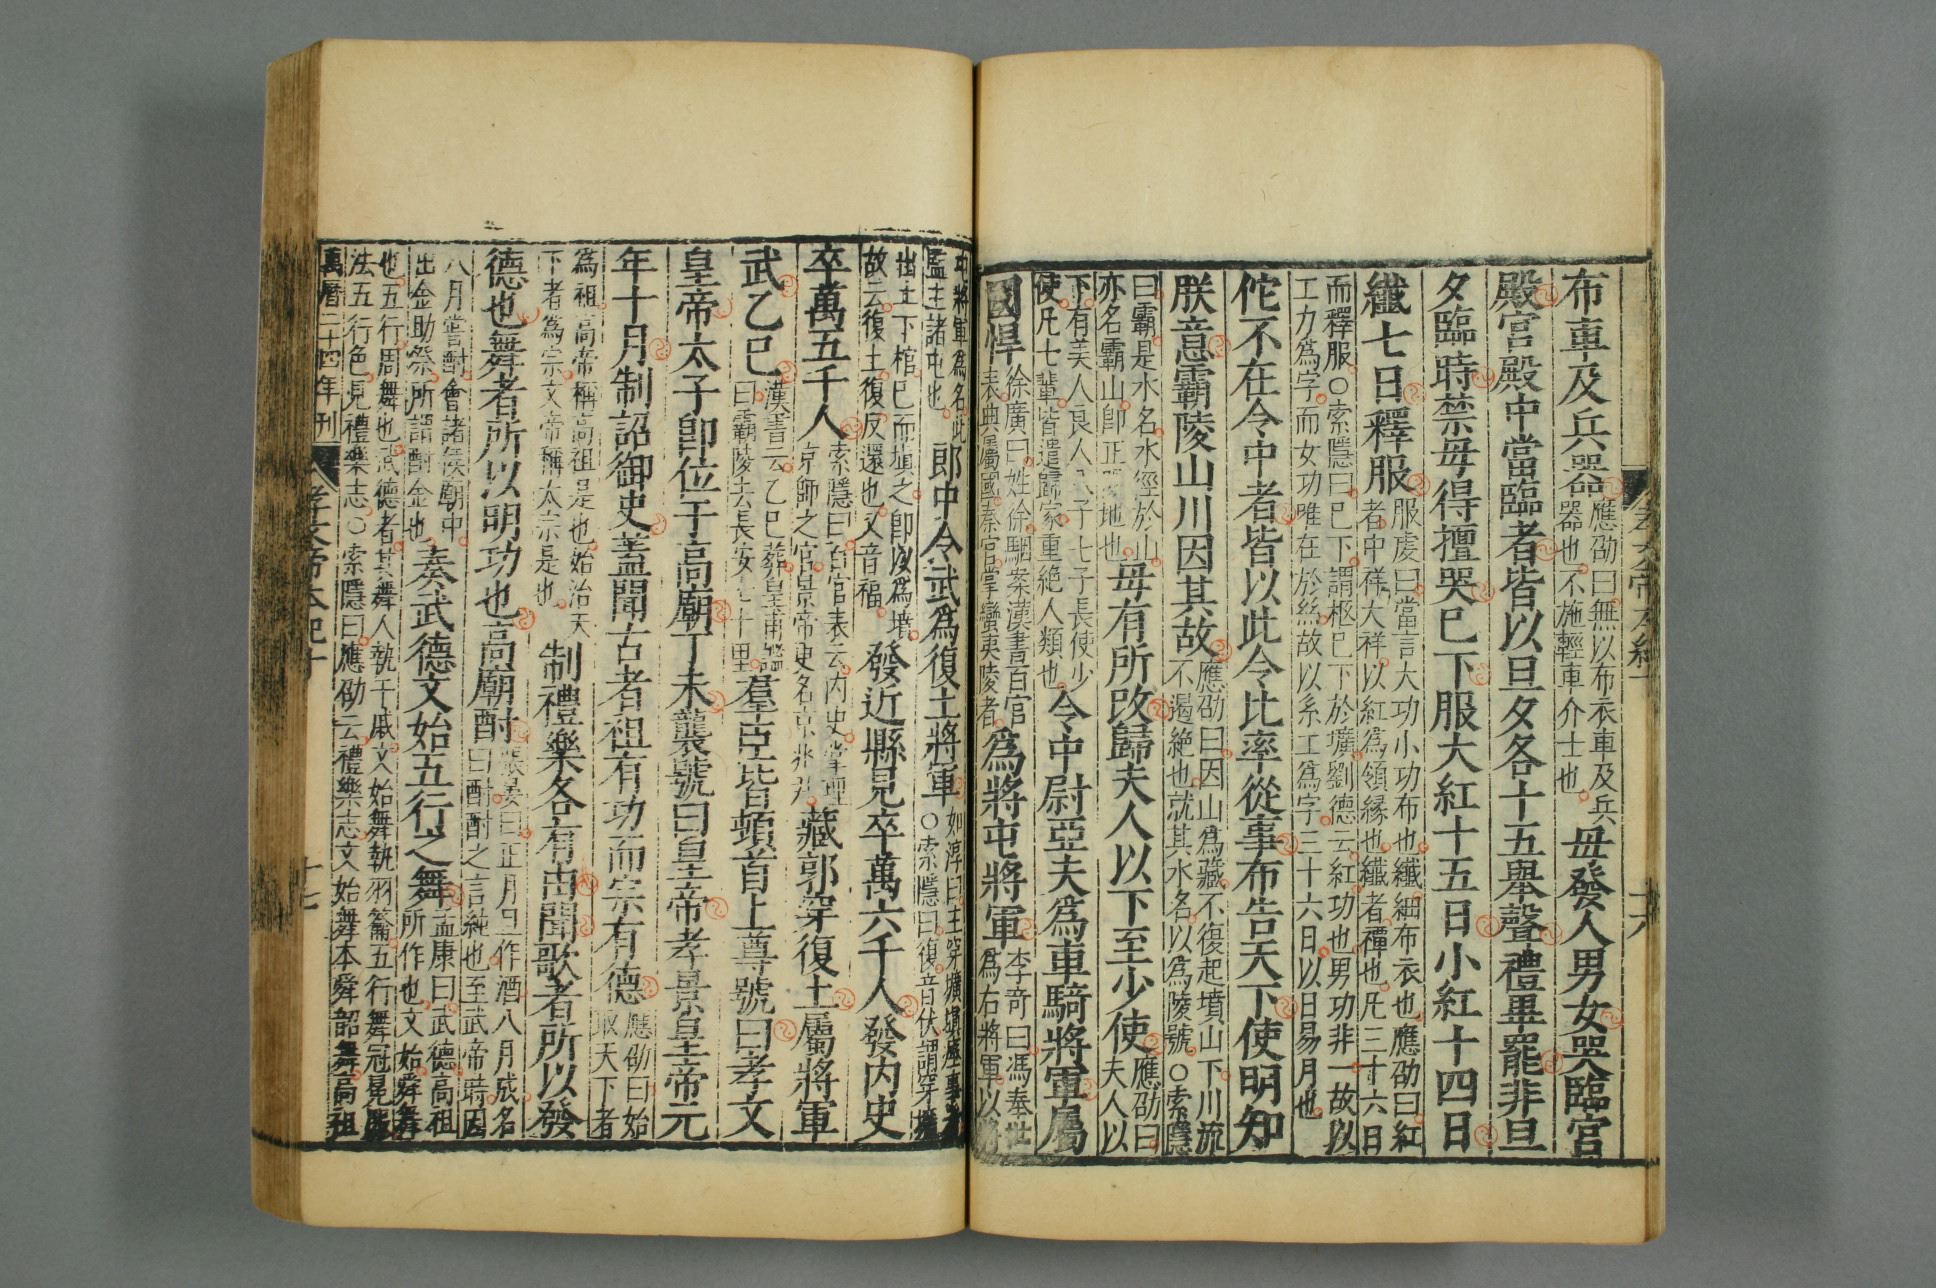 布車及兵器應劭曰無以布衣車及兵器也不施輕車介士也毋發人男女哭臨宮
殿宮殿中當臨者皆以旦夕各十五舉聲禮畢罷非旦
夕臨時禁毋得擅哭已下服大紅十五日小紅十四日
纖七日釋服服虔曰當言大功小功布也纖細布衣也應劭曰紅者中祥大祥以紅為領緣也纖者禫也凡三十六日
而釋服○索隱曰已下謂柩已下於壙劉德云紅功也男功非一故以工力為字而女功唯在於絲故以糸工為字三十六日以日易月也
佗不在令中者皆以此令比率從事布告天下使明知
朕意霸陵山川因其故應劭曰因山為藏不復起墳山下川流不遏絕也就其水名以為陵號○索隱
曰霸是水名水經於山亦名霸山即芷陽地也毋有所改歸夫人以下至少使應劭曰夫人以
下有美人良人八子七子長使少使凡七輩皆遣歸家重絕人類也令中尉亞夫為車騎將軍屬
國悍徐廣曰姓徐駰案漢書百官表典屬國秦官掌蠻夷陵者為將屯將軍李奇曰馮奉世為右將軍以將
屯將軍為名此監主諸屯也郎中令武為復土將軍如淳曰主穿壙填瘞事者○索隱曰復音伏謂穿壙
出土下棺已而填之即以為墳故云復土復反還也又音福發近縣見卒萬六千人發內史
卒萬五千人索隱曰百官表云內史掌理京師之官景帝更名京兆尹藏郭穿復土屬將軍
武乙巳漢書云乙巳葬皇甫謐曰霸陵去長安七十里羣臣皆頓首上尊號曰孝文
皇帝太子即位于高廟丁未襲號曰皇帝孝景皇帝元
年十月制詔御史蓋聞古者祖有功而宗有德應劭曰始取天下者
為祖高帝稱高祖是也始治天下者為宗文帝稱太宗是也制禮樂各有由聞歌者所以發
德也舞者所以明功也高廟酎張晏曰正月旦作酒八月成名曰酎酎之言純也至武帝時因
八月嘗酎會諸侯廟中出金助祭所謂酎金也奏武德文始五行之舞孟康曰武德高祖所作也文始舜舞
也五行周舞也武德者其舞人執干戚文始舞執羽籥五行舞冠冕衣服法五行色見禮樂志○索隱曰應劭云禮樂志文始舞本舜韶舞高祖
萬曆二十四年刊
孝文帝本紀十
十七
十六